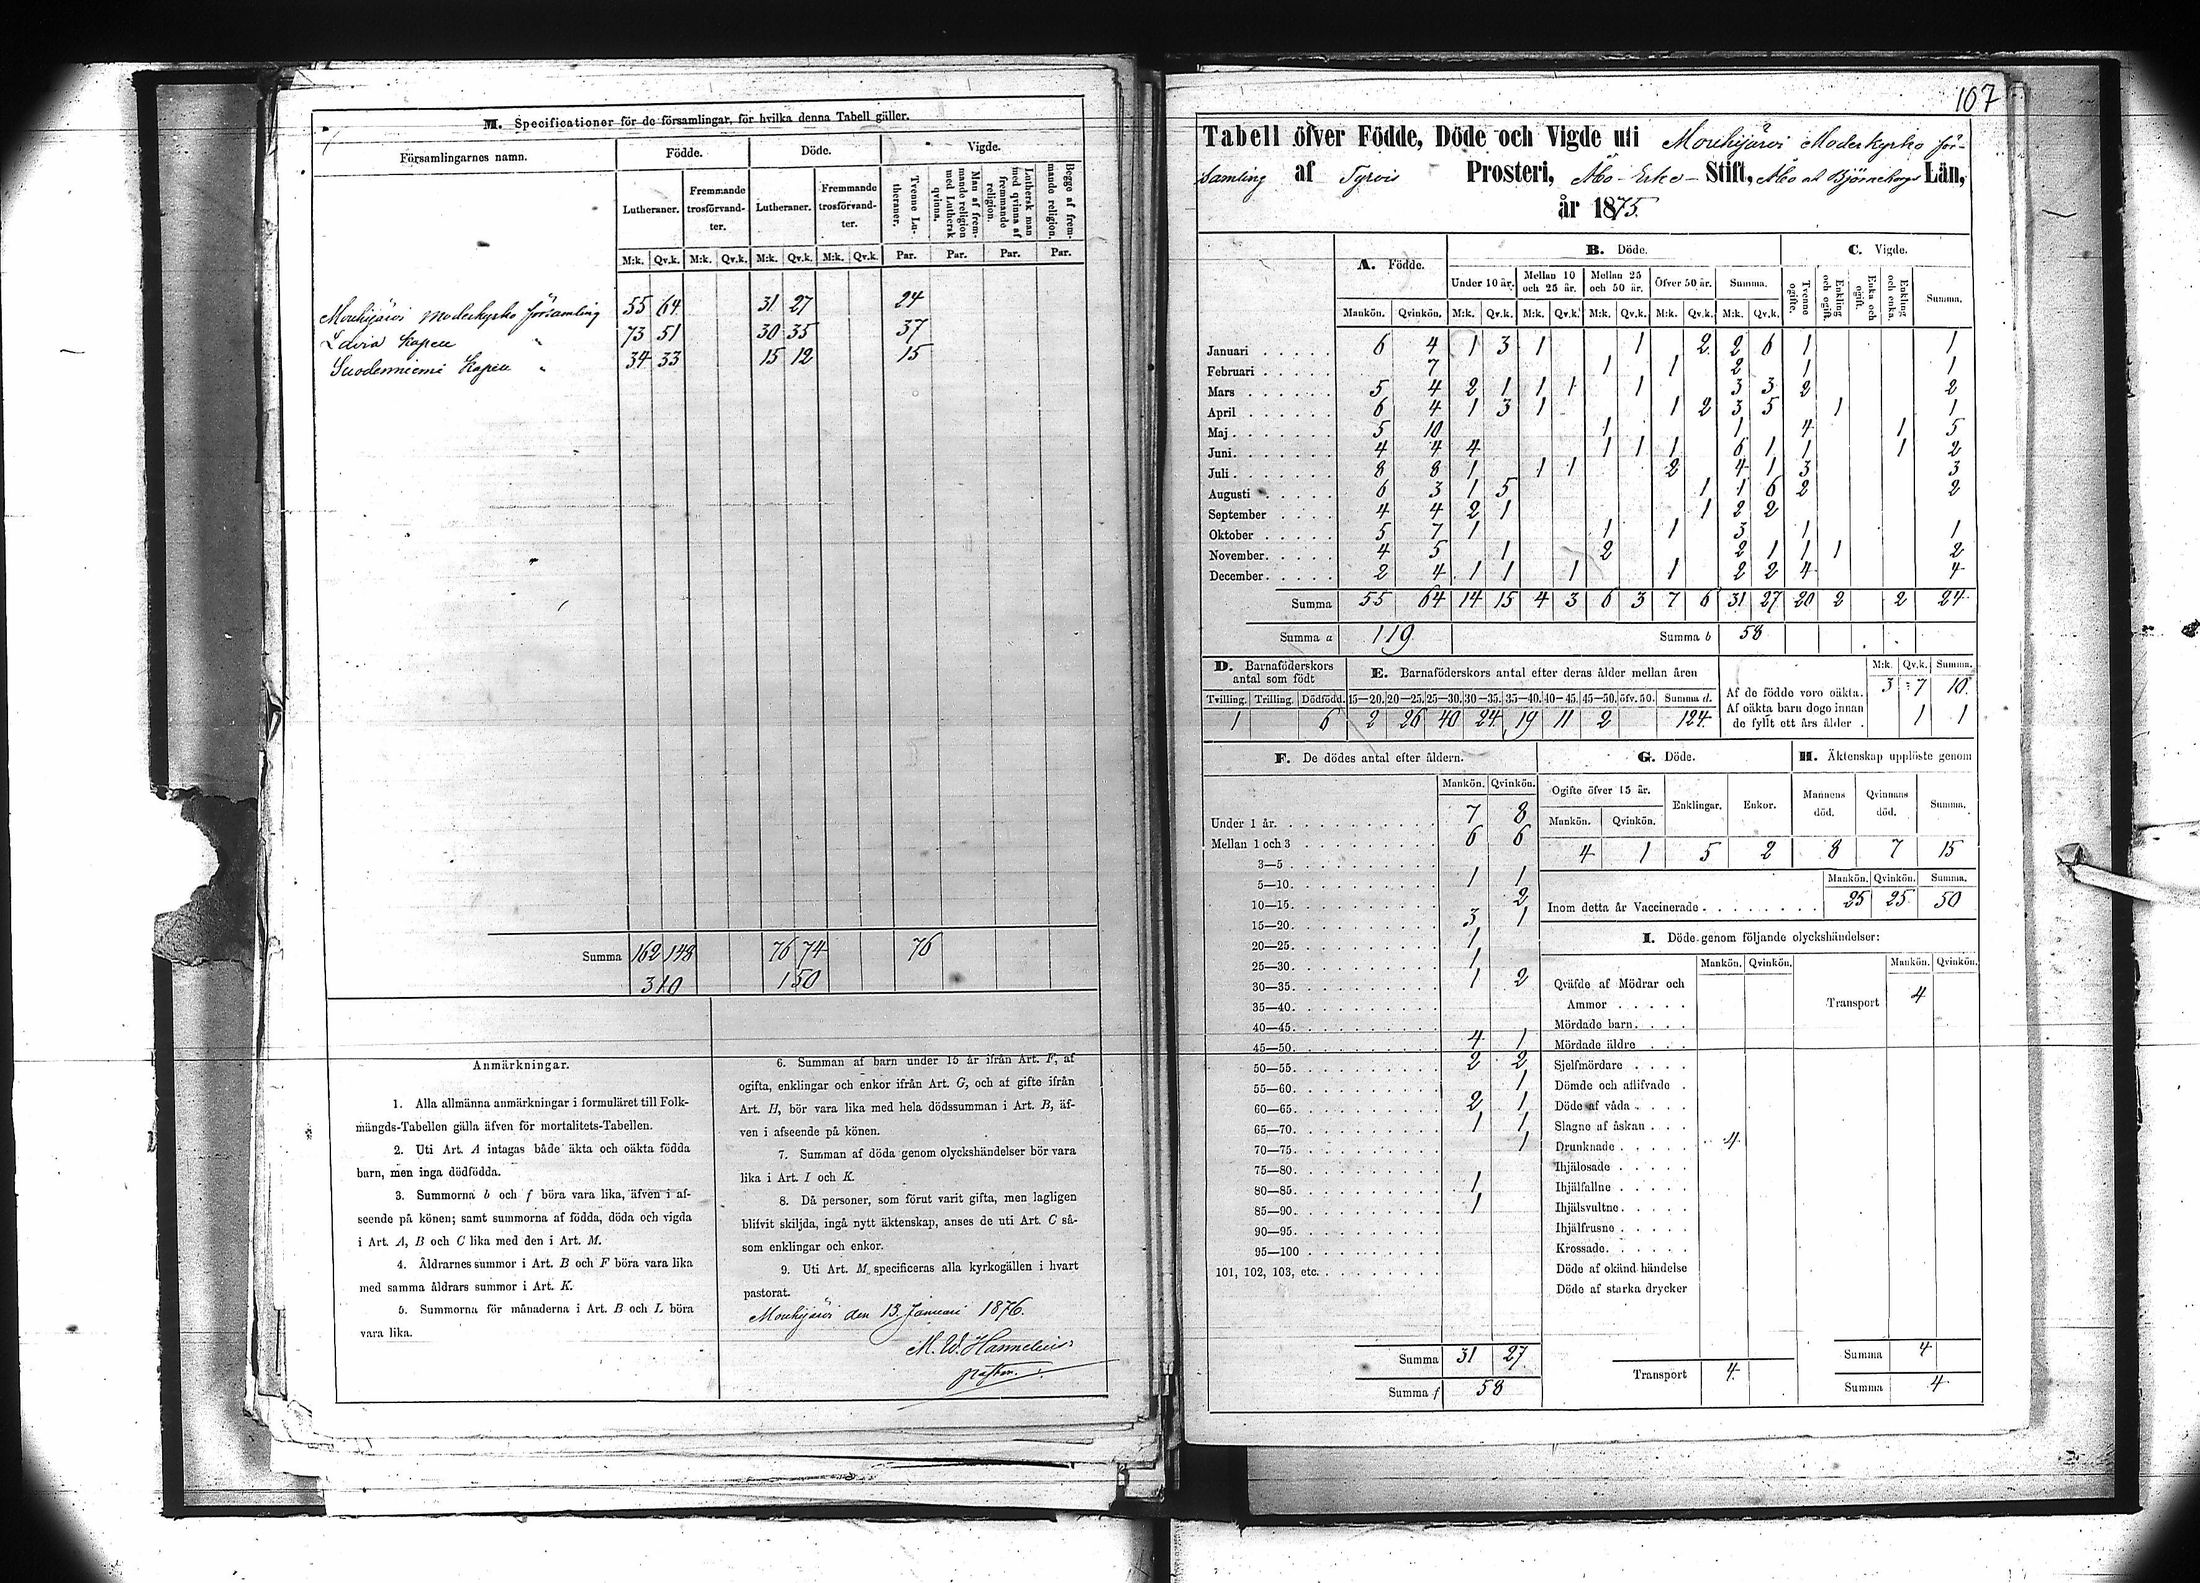 M. Specificationer för de församlingar, för hvilka denna Tabell gäller.
Församlingarnes namn. Födde. Döde. Vigde.
Lutheraner. Fremmande trosförvandter. Lutheraner. Fremmande trosförvandter. Tvenne Lutheraner. Man af fremmande religion med Luthersk qvinna. Luthersk man med qvinna af fremmande religion. Begge af fremmande religion.
M:k. Qv.k. M:k. Qv.k. M:k. Qv.k. M:k. Qv.k. Par. Par. Par. Par.
Mouhijärvi moderkyrko församling 55 64 31 27 24
Lavia Kapell " 73 51 30 35 37
Suodenniemi Kapell " 34 33 15 12 15
Summa 162 148 76 74 76
310 150
Anmärkningar.
1. Alla allmänna anmärkningar i formuläret till Folk-
mängds-Tabellen gälla äfven för mortalitets-Tabellen.
2. Uti Art. A intagas både äkta och oäkta födda
barn, men inga dödfödda.
3. Summorna b och f böra vara lika, äfven i af-
seende på könen; samt summorna af födda, döda och vigda
i Art. A, B och C lika med den i Art. M.
4. Åldrarnes summor i Art. B och F böra vara lika
med samma åldrars summor i Art. K.
5. Summorna för månaderna i Art. B och L böra
vara lika.
6. Summan af barn under 15 år ifrån Art. F, af
ogifta, enklingar och enkor ifrån Art. G, och af gifte ifrån
Art. H, bör vara lika med hela dödssumman i Art. B, äf-
ven i afseende på könen.
7. Summan af döda genom olyckshändelser bör vara
lika i Art. I och K.
8. Då personer, som förut varit gifta, men lagligen
blifvit skiljda, ingå nytt äktenskap, anses de uti Art. C så-
som enklingar och enkor.
9. Uti Art. M. specificeras alla kyrkogällen i hvart
pastorat.
Mouhijärvi den 13 Januari 1876.
M. W. Hannelius.
107
Tabell öfver Födde, Döde och Vigde uti Mouhijärvi Moderkyrko för-
samling af Tyrvis Prosteri, Åbo Erke- Stift, Åbo och Björneborgs Län,
år 1875.
A. Födde. B. Döde. C. Vigde.
Under 10 år. Mellan 10 och 25 år. Mellan 25 och 50 år. Öfver 50 år. Summa. Tvenne ogifte. Enkling och ogift. Enka och ogift. Enkling och enka. Summa.
Mankön. Qvinkön. M:k. Qv.k. M:k. Qv.k. M:k. Qv.k. M:k. Qv.k. M:k. Qv.k.
Januari 6 4 1 3 1 1 2 2 6 1 1
Februari 7 1 1 2 1 1
Mars 5 4 2 1 1 1 1 3 3 2 2
April 6 4 1 3 1 1 2 3 5 1 1
Maj 5 10 1 1 4 1 5
Juni 4 4 4 1 1 1 6 1 1 1 2
Juli 8 8 1 1 1 2 4 1 3 3
Augusti 6 3 1 5 1 1 6 2 2
September 4 4 2 1 1 2 2
Oktober 5 7 1 1 1 3 1 1
November 4 5 1 2 2 1 1 1 2
December 2 4 1 1 1 1 2 2 4 4
Summa 55 64 14 15 4 3 6 3 7 6 31 27 20 2 2 24
Summa a 119. Summa b 58
D. Barnaföderskors antal som födt
Tvilling. Trilling. Dödfödd.
1 6
E. Barnaföderskors antal efter deras ålder mellan åren
15—20. 20—25. 25—30. 30—35. 35—40. 40—45. 45—50. öfv. 50. Summa d.
2 26 40 24 19 11 2 124
M:k. Qv.k. Summa.
Af de födde voro oäkta. 3 7 10
Af oäkta barn dogo innan
de fyllt ett års ålder . 1 1
F. De dödes antal efter åldern.
Mankön. Qvinkön.
Under 1 år. 7 8
Mellan 1 och 3 6 6
3—5
5—10. 1 1
10—15. 2
15—20. 3 1
20—25. 1
25—30. 1
30—35. 1 2
35—40.
40—45.
45—50. 4 1
50—55. 2 2
55—60. 1
60—65. 2 1
65—70. 1 1
70—75. 1
75—80.
80—85. 1
85—90. 1
90—95.
95—100
101, 102, 103, etc.
Summa 31 27
Summa f 58
G. Döde.
Ogifte öfver 15 år. Enklingar. Enkor.
Mankön. Qvinkön.
4 1 5 2
H. Äktenskap upplöste genom
Mannens död. Qvinnans död. Summa.
8 7 15
Mankön. Qvinkön. Summa.
Inom detta år Vaccinerade 25 25 50
I. Döde genom följande olyckshändelser:
Mankön. Qvinkön. Mankön. Qvinkön.
Qväfde af Mödrar och
Ammor
Transport 4
Mördade barn
Mördade äldre
Sjelfmördare
Dömde och aflifvade
Döde af våda
Slagne af åskan
Drunknade 4
Ihjälosade
Ihjälfallne
Ihjälsvultne
Ihjälfrusne
Krossade
Döde af okänd händelse
Döde af starka drycker
Transport 4
Summa 4
Summa 4